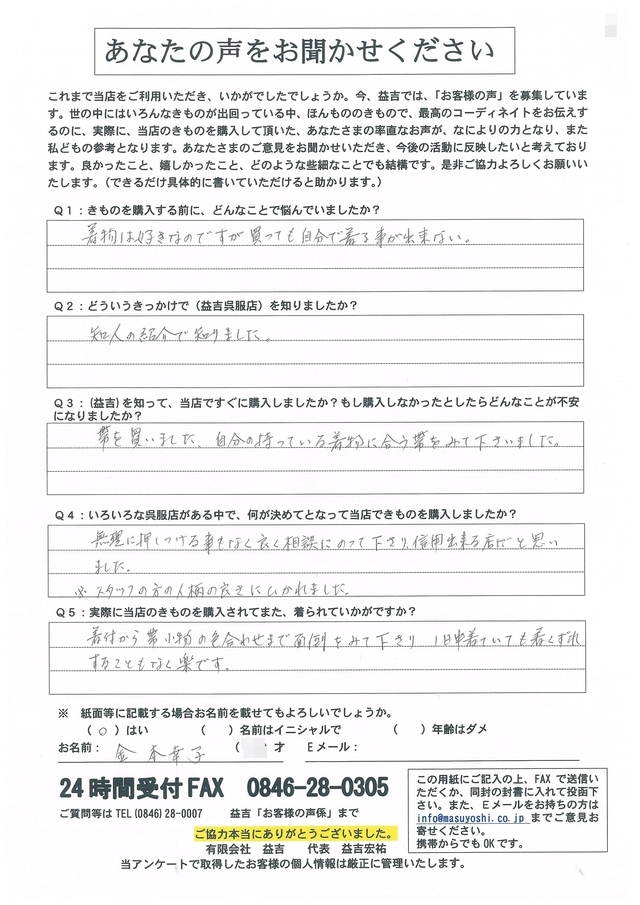 あなたの声をお聞かせください
これまで当店をご利用いただき、いかがでしたでしょうか。今、益吉では、「お客様の声」を募集していま
す。世の中にはいろんなきものが出回っている中、ほんもののきもので、最高のコーディネイトをお伝えす
るのに、実際に、当店のきものを購入して頂いた、あなたさまの率直なお声が、なによりの力となり、また
私どもの参考となります。あなたさまのご意見をお聞かせいただき、今後の活動に反映したいと考えており
ます。良かったこと、嬉しかったこと、どのような些細なことでも結構です。是非ご協力よろしくお願いい
たします。（できるだけ具体的に書いていただけると助かります。）
Ｑ１：きものを購入する前に、どんなことで悩んでいましたか？
着物は好きなのですが買っても自分で着る事が出来ない。
Ｑ２：どういうきっかけで（益吉呉服店）を知りましたか？
知人の紹介で知りました。
Ｑ３：(益吉)を知って、当店ですぐに購入しましたか？もし購入しなかったとしたらどんなことが不安
になりましたか？
帯を買いました、自分の持っている着物に合う帯をみて下さいました。
Ｑ４：いろいろな呉服店がある中で、何が決めてとなって当店できものを購入しましたか？
無理に押しつける事もなく良く相談にのって下さり、信用出来る店だと思い
ました。
※ スタッフの方の人柄の良さにひかれました。
Ｑ５：実際に当店のきものを購入されてまた、着られていかがですか？
着付から帯小物の色合わせまで面倒をみて下さり 1日中着ていても着くずれ
することもなく楽です。
※ 紙面等に記載する場合お名前を載せてもよろしいでしょうか。
（ ○ ）はい （ ）名前はイニシャルで （ ）年齢はダメ
お名前： 金本幸子 （ 才 Ｅメール：
24時間受付FAX 0846-28-0305
ご質問等は TEL(0846)28-0007 益吉「お客様の声係」まで
ご協力本当にありがとうございました。
有限会社 益吉 代表 益吉宏祐
当アンケートで取得したお客様の個人情報は厳正に管理いたします。
この用紙にご記入の上、FAX で送信い
ただくか、同封の封書に入れて投函下
さい。また、Ｅメールをお持ちの方は
info@masuyoshi.co.jp までご意見お
寄せください。
携帯からでもOKです。